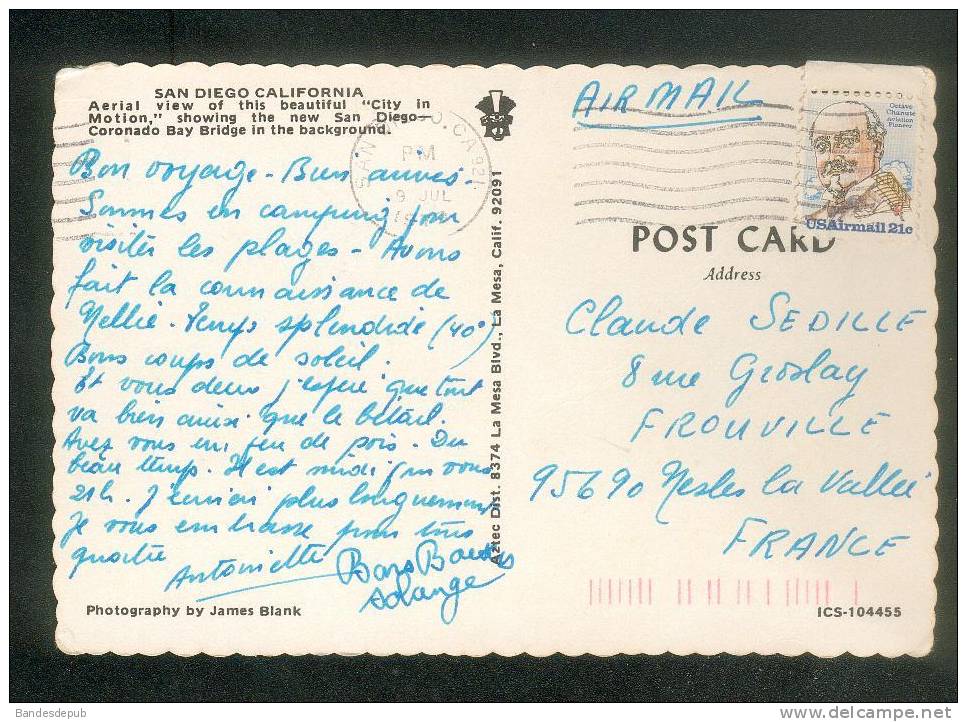 SAN DIEGO CALIFORNIA
Aerial view of this beautiful "City in
Motion," showing the new San Diego-
Coronado Bay Bridge in the background.
Bon voyage - Bien arrivés -
Sommes en camping pour
visiter les plages - Avons
fait la connaissance de
Nellie. Temps splendide (40°)
Bons coups de soleil.
Et vous deux j'espère que tout
va bien ainsi que le bétail.
Avez vous un peu de pois. Du
beau temps. Il est midi pour vous
21h. J'écrirai plus longuement
Je vous embrasse pour tous
quatre
Antoinette
Bons Baisers
Solange
Photography by James Blank
Aztec Dist. 8374 La Mesa Blvd., La Mesa, Calif. 92091
SAN DIEGO, CA 921
PM
9 JUL
AIR MAIL
Octave
Chanute
Aviation
Pioneer
USAirmail 21c
POST CARD
Address
Claude SEDILLE
8 rue Groslay
FROUVILLE
95690 Nesles la Vallée
FRANCE
ICS-104455
Bandesdepub
www.delcampe.net